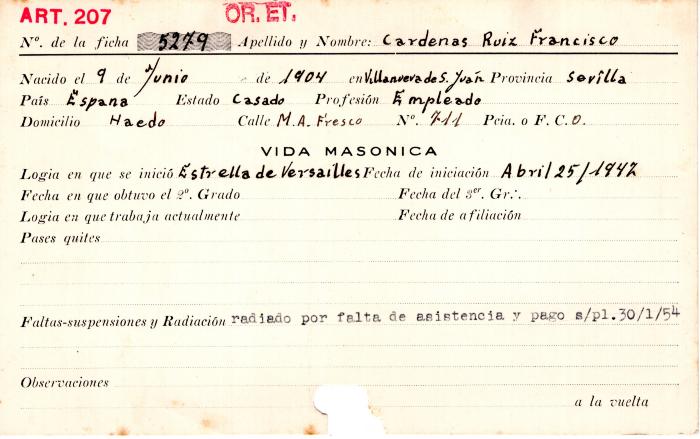 ART. 207 OR. ET.
Nº. de la ficha 5279 Apellido y Nombre: Cardenas Ruiz Francisco
Nacido el 9 de Junio de 1904 en Villanueva de S. Juan Provincia Sevilla
País España Estado Casado Profesión Empleado
Domicilio Haedo Calle M.A. Fresco Nº. 711 Pcia. o F. C. O.
VIDA MASONICA
Logia en que se inició Estrella de Versailles Fecha de iniciación Abril/25/1947
Fecha en que obtuvo el 2º. Grado Fecha del 3er. Gr∴.
Logia en que trabaja actualmente Fecha de afiliación
Pases quites
Faltas-suspensiones y Radiación radiado por falta de asistencia y pago s/pl.30/1/54
Observaciones
a la vuelta